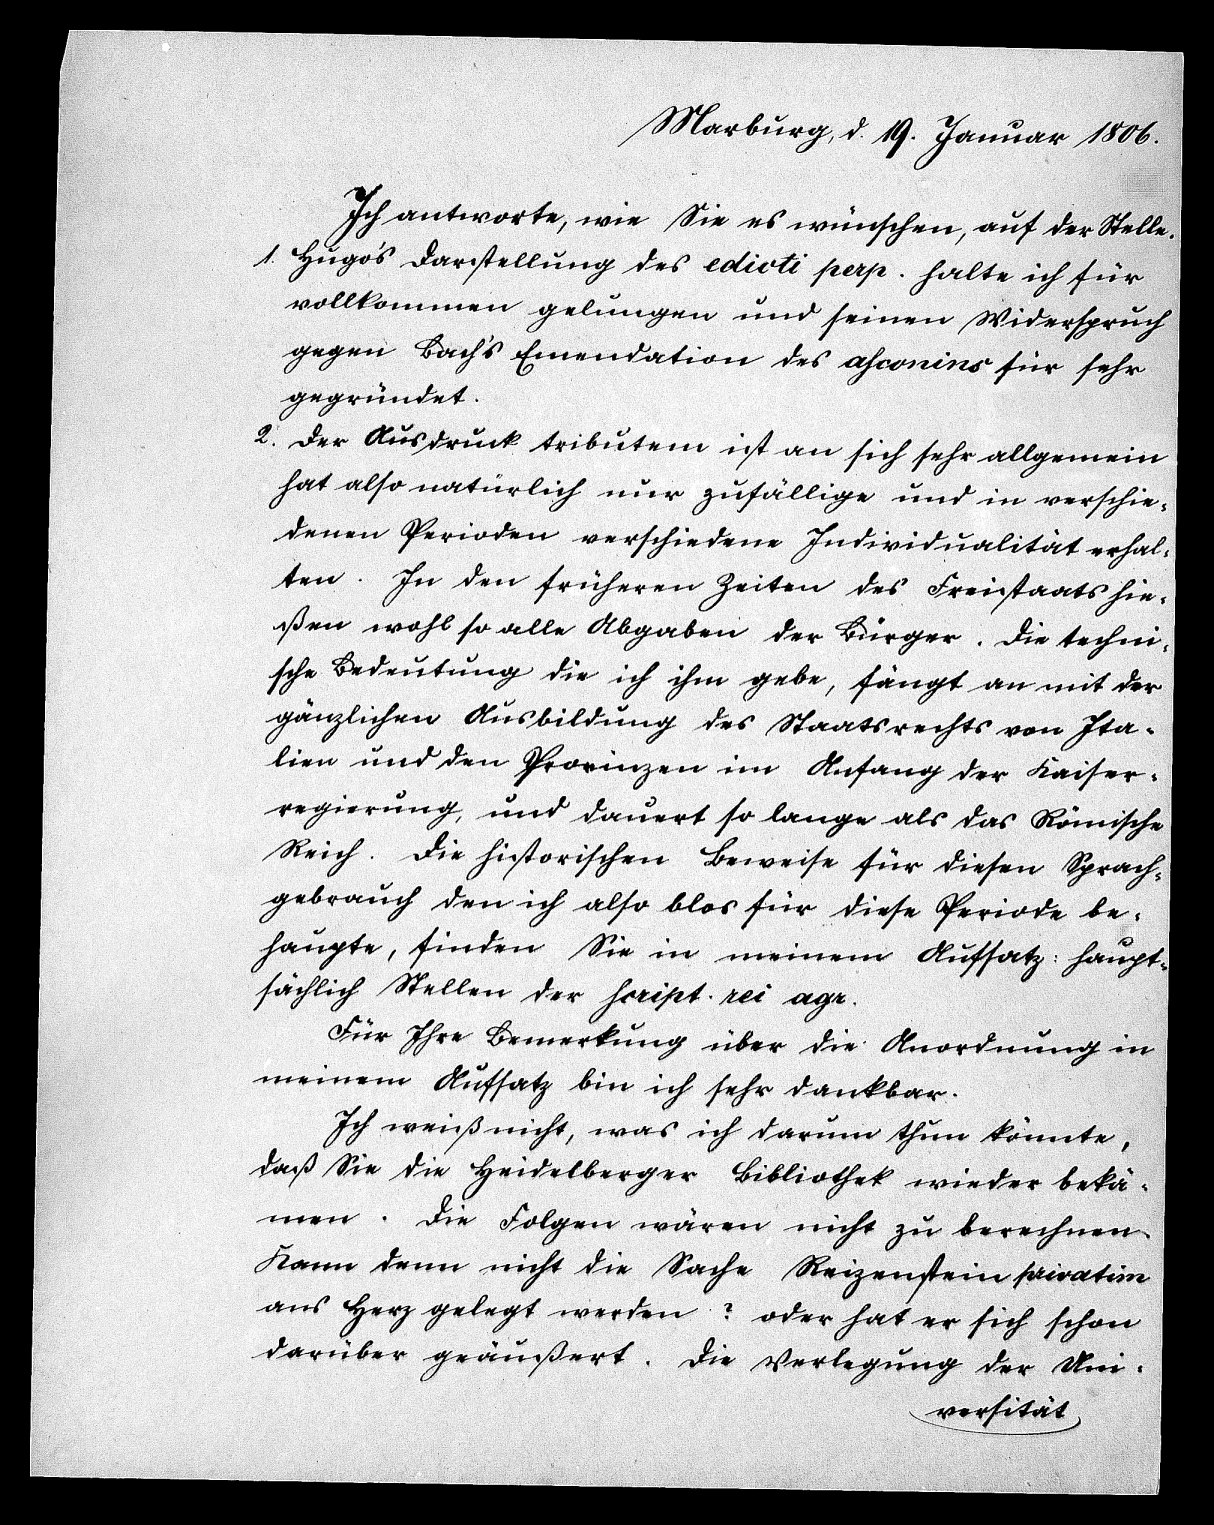 Marburg, d. 19. Januar 1806.
Ich antworte, wie Sie es wünschen, auf der Stelle.
1. Hugo's Darstellung des edicti perp. halte ich für
vollkommen gelungen und seinen Widerspruch
gegen Bach's Emendation des Asconins für sehr
gegründet.
2. Der Ausdruck tributem ist an sich sehr allgemein
hat also natürlich nur zufällige und in verschie-
denen Perioden verschiedene Individualität erhal-
ten. In den früheren Zeiten des Freistaats hie-
ßen wohl so alle Abgaben der Bürger. Die techni-
sche Bedeutung die ich ihm gebe, fängt an mit der
gänzlichen Ausbildung des Staatsrechts von Ita-
lien und den Provinzen im Anfang der Kaiser-
regierung, und dauert so lange als das Römische
Reich. Die historischen Beweise für diesen Sprach-
gebrauch den ich also blos für diese Periode be-
haupte, finden Sie in meinem Aufsatz: haupt-
sächlich Stellen der script. rei agr.
Für Ihre Bemerkung über die Anordnung in
meinem Aufsatz bin ich sehr dankbar.
Ich weiß nicht, was ich darum thun könnte,
daß Sie die Heidelberger Bibliothek wieder bekä-
men. Die Folgen wären nicht zu berechnen.
Kann denn nicht die Sache Reizenstein privatim
ans Herz gelegt werden? oder hat er sich schon
darüber geäußert. Die Verlegung der Uni-
versität